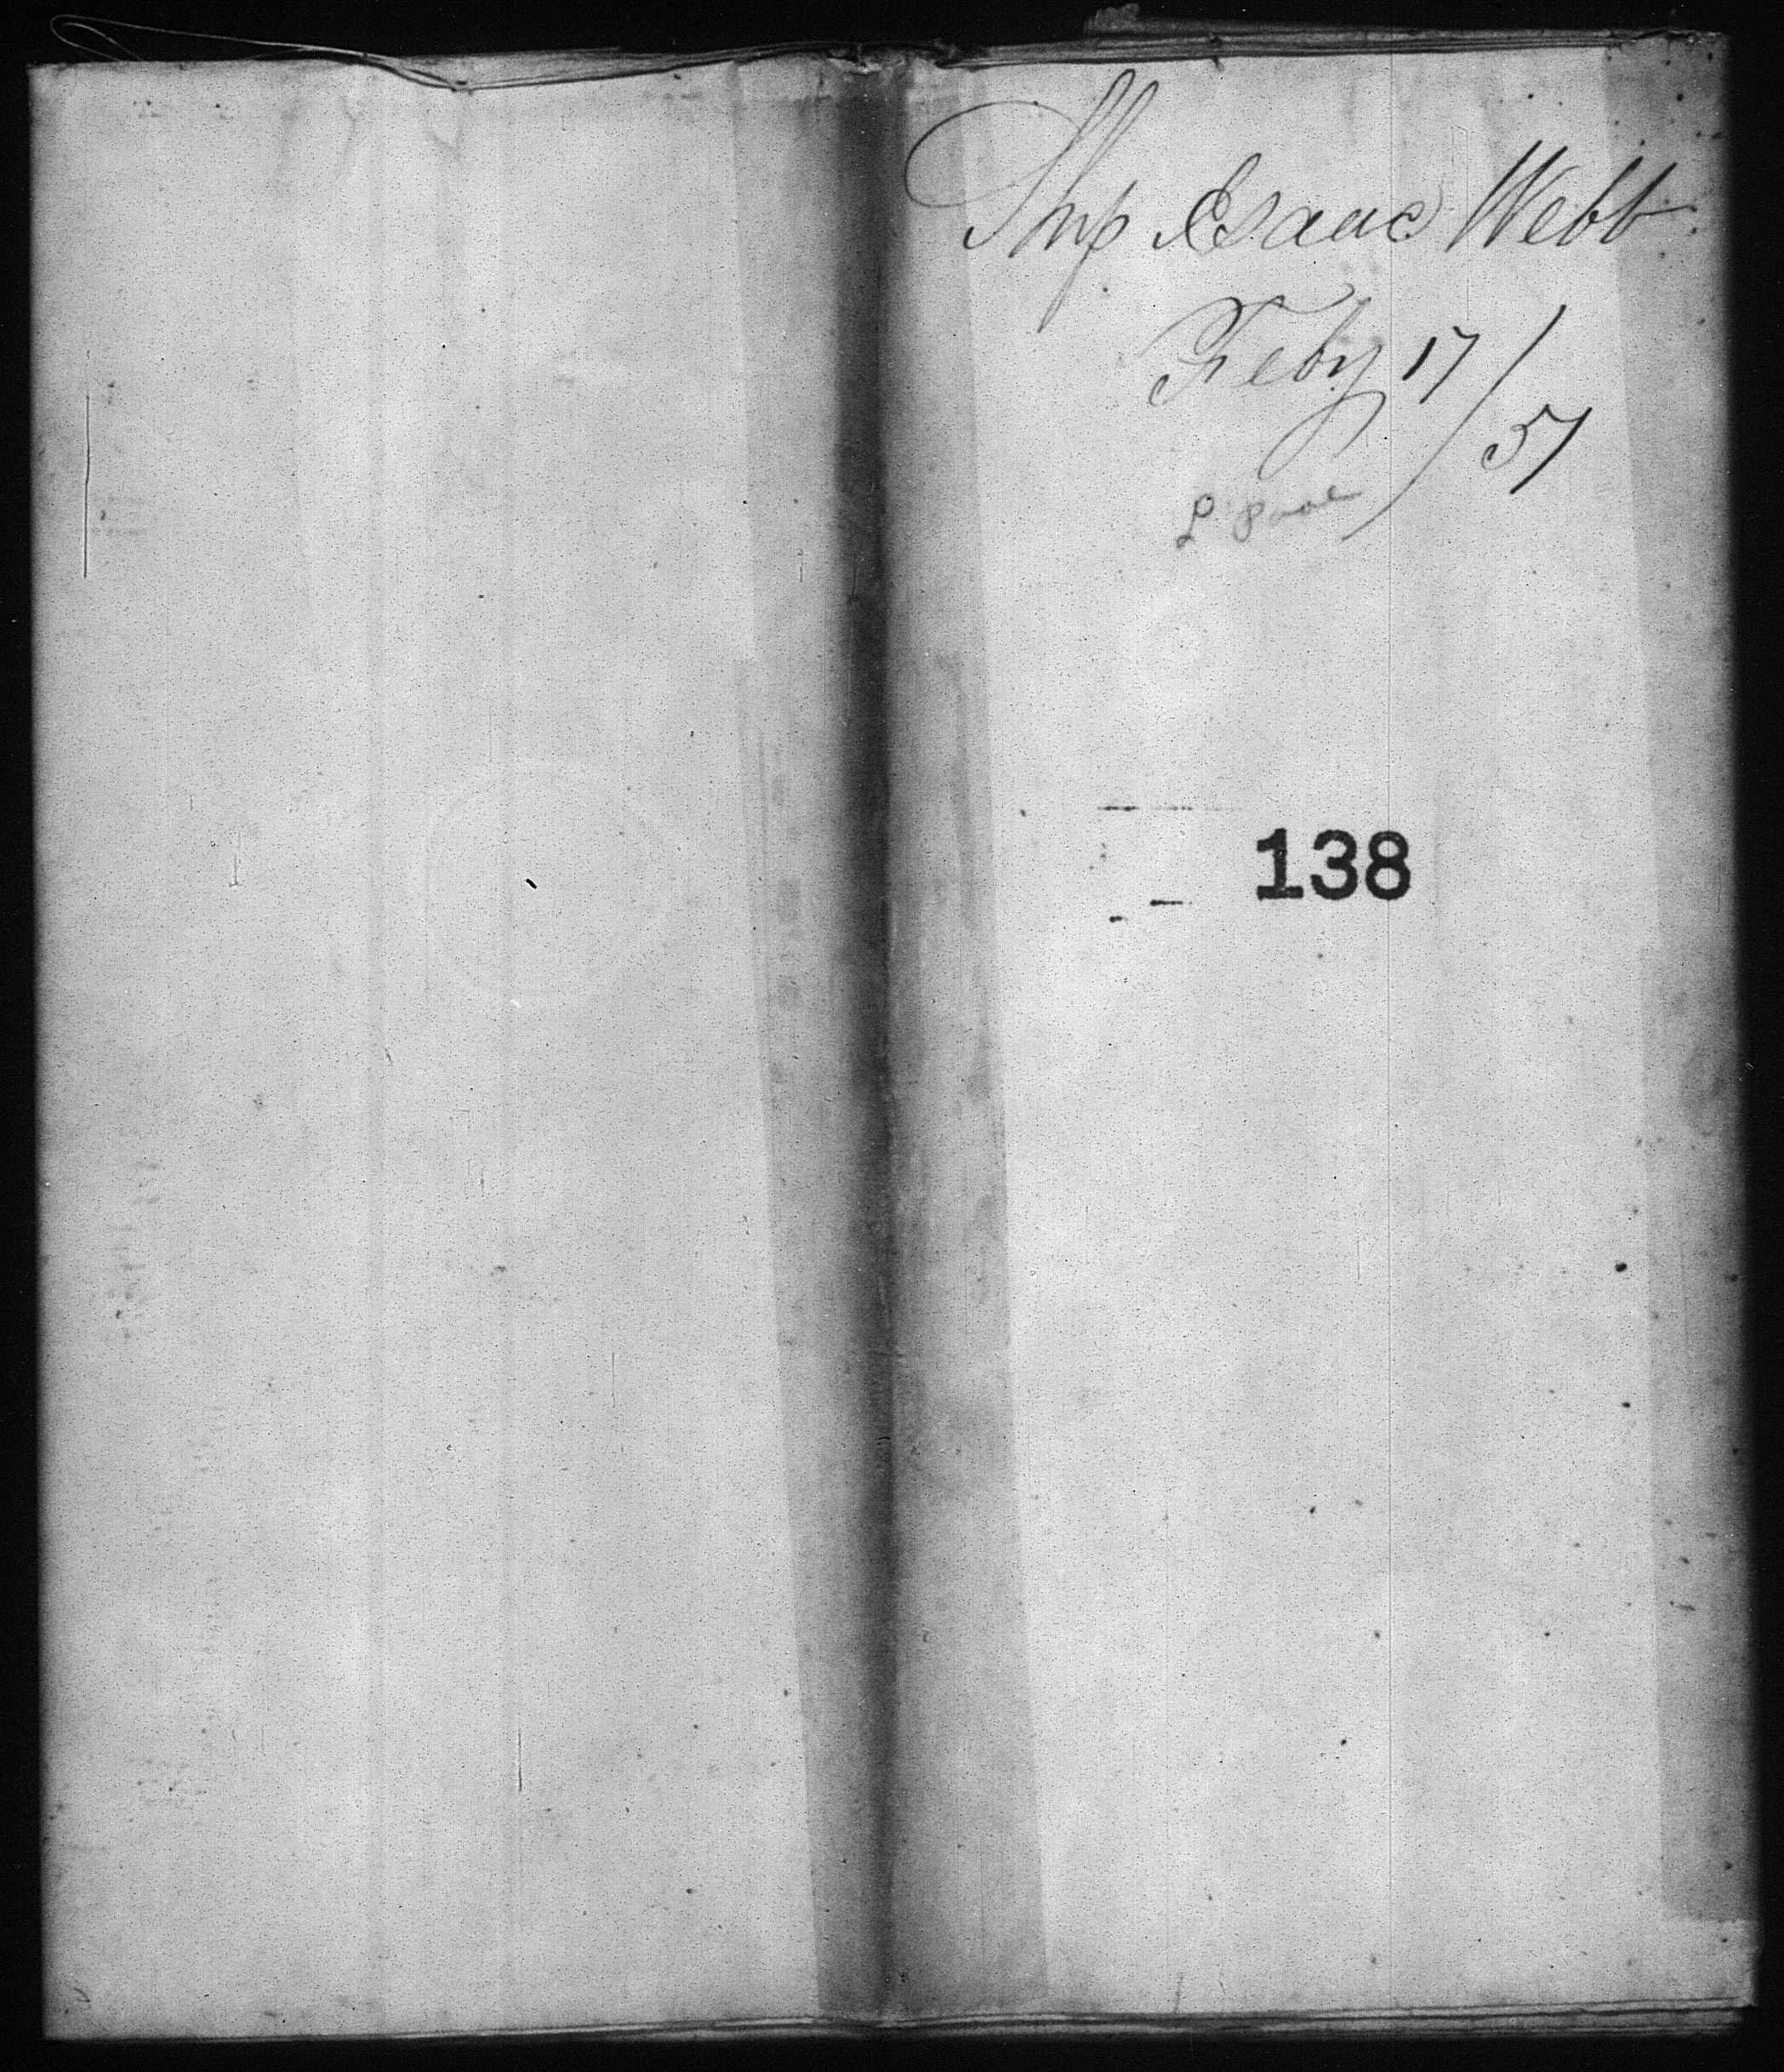 Ship Isaac Webb
Feby 17/57
L'Pool
138